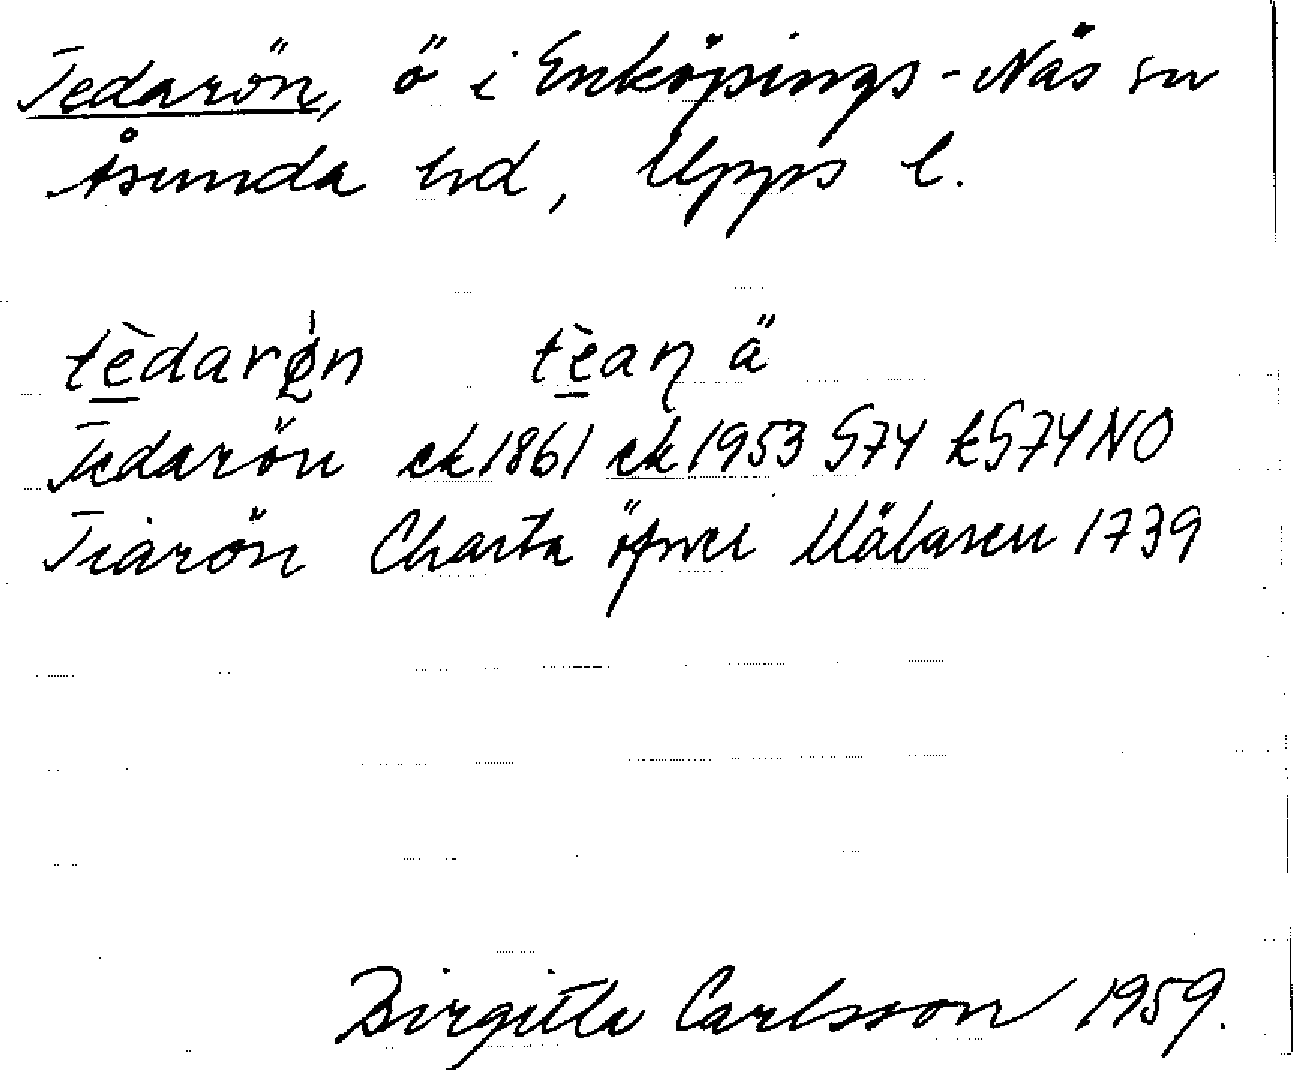 Tedarön, ö i Enköpings-Näs sn
Åsunda hd, Upps l.
tèdarøn tèaŋ ä
Tedarön ek 1861 ek 1953 G74 tG74NO
Tiarön Charta öfwer Mälaren 1739
Birgitta Carlsson 1959.